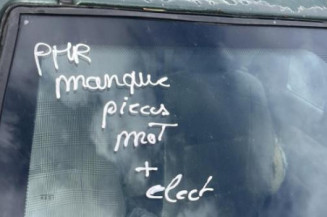 PHR
manque
pieces
moT
+
elect